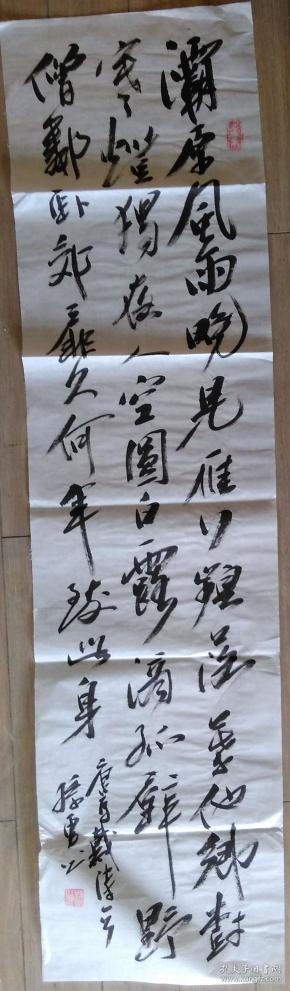 灞原風雨晚見雁行頻落葉他鄉樹
寒燈獨夜人空園白露滴孤壁野
僧鄰卧郊扉久何年致此身
唐馬戴詩一首